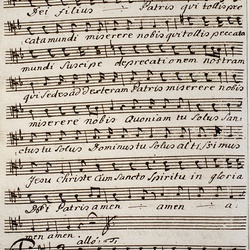 Dei filius Patris qui tollis pec
cata mundi miserere nobis qui tollis peccata
mundi Suscipe deprecationem nostram
qui Sedes ad dexteram Patris miserere nobis
miserere nobis Quoniam tu Solus San,
ctus tu Solus Dominus tu Solus altissimus
Jesu Christe Cum Sancto Spiritu in gloria
Dei Patris amen amen a,
men amen.
allo: